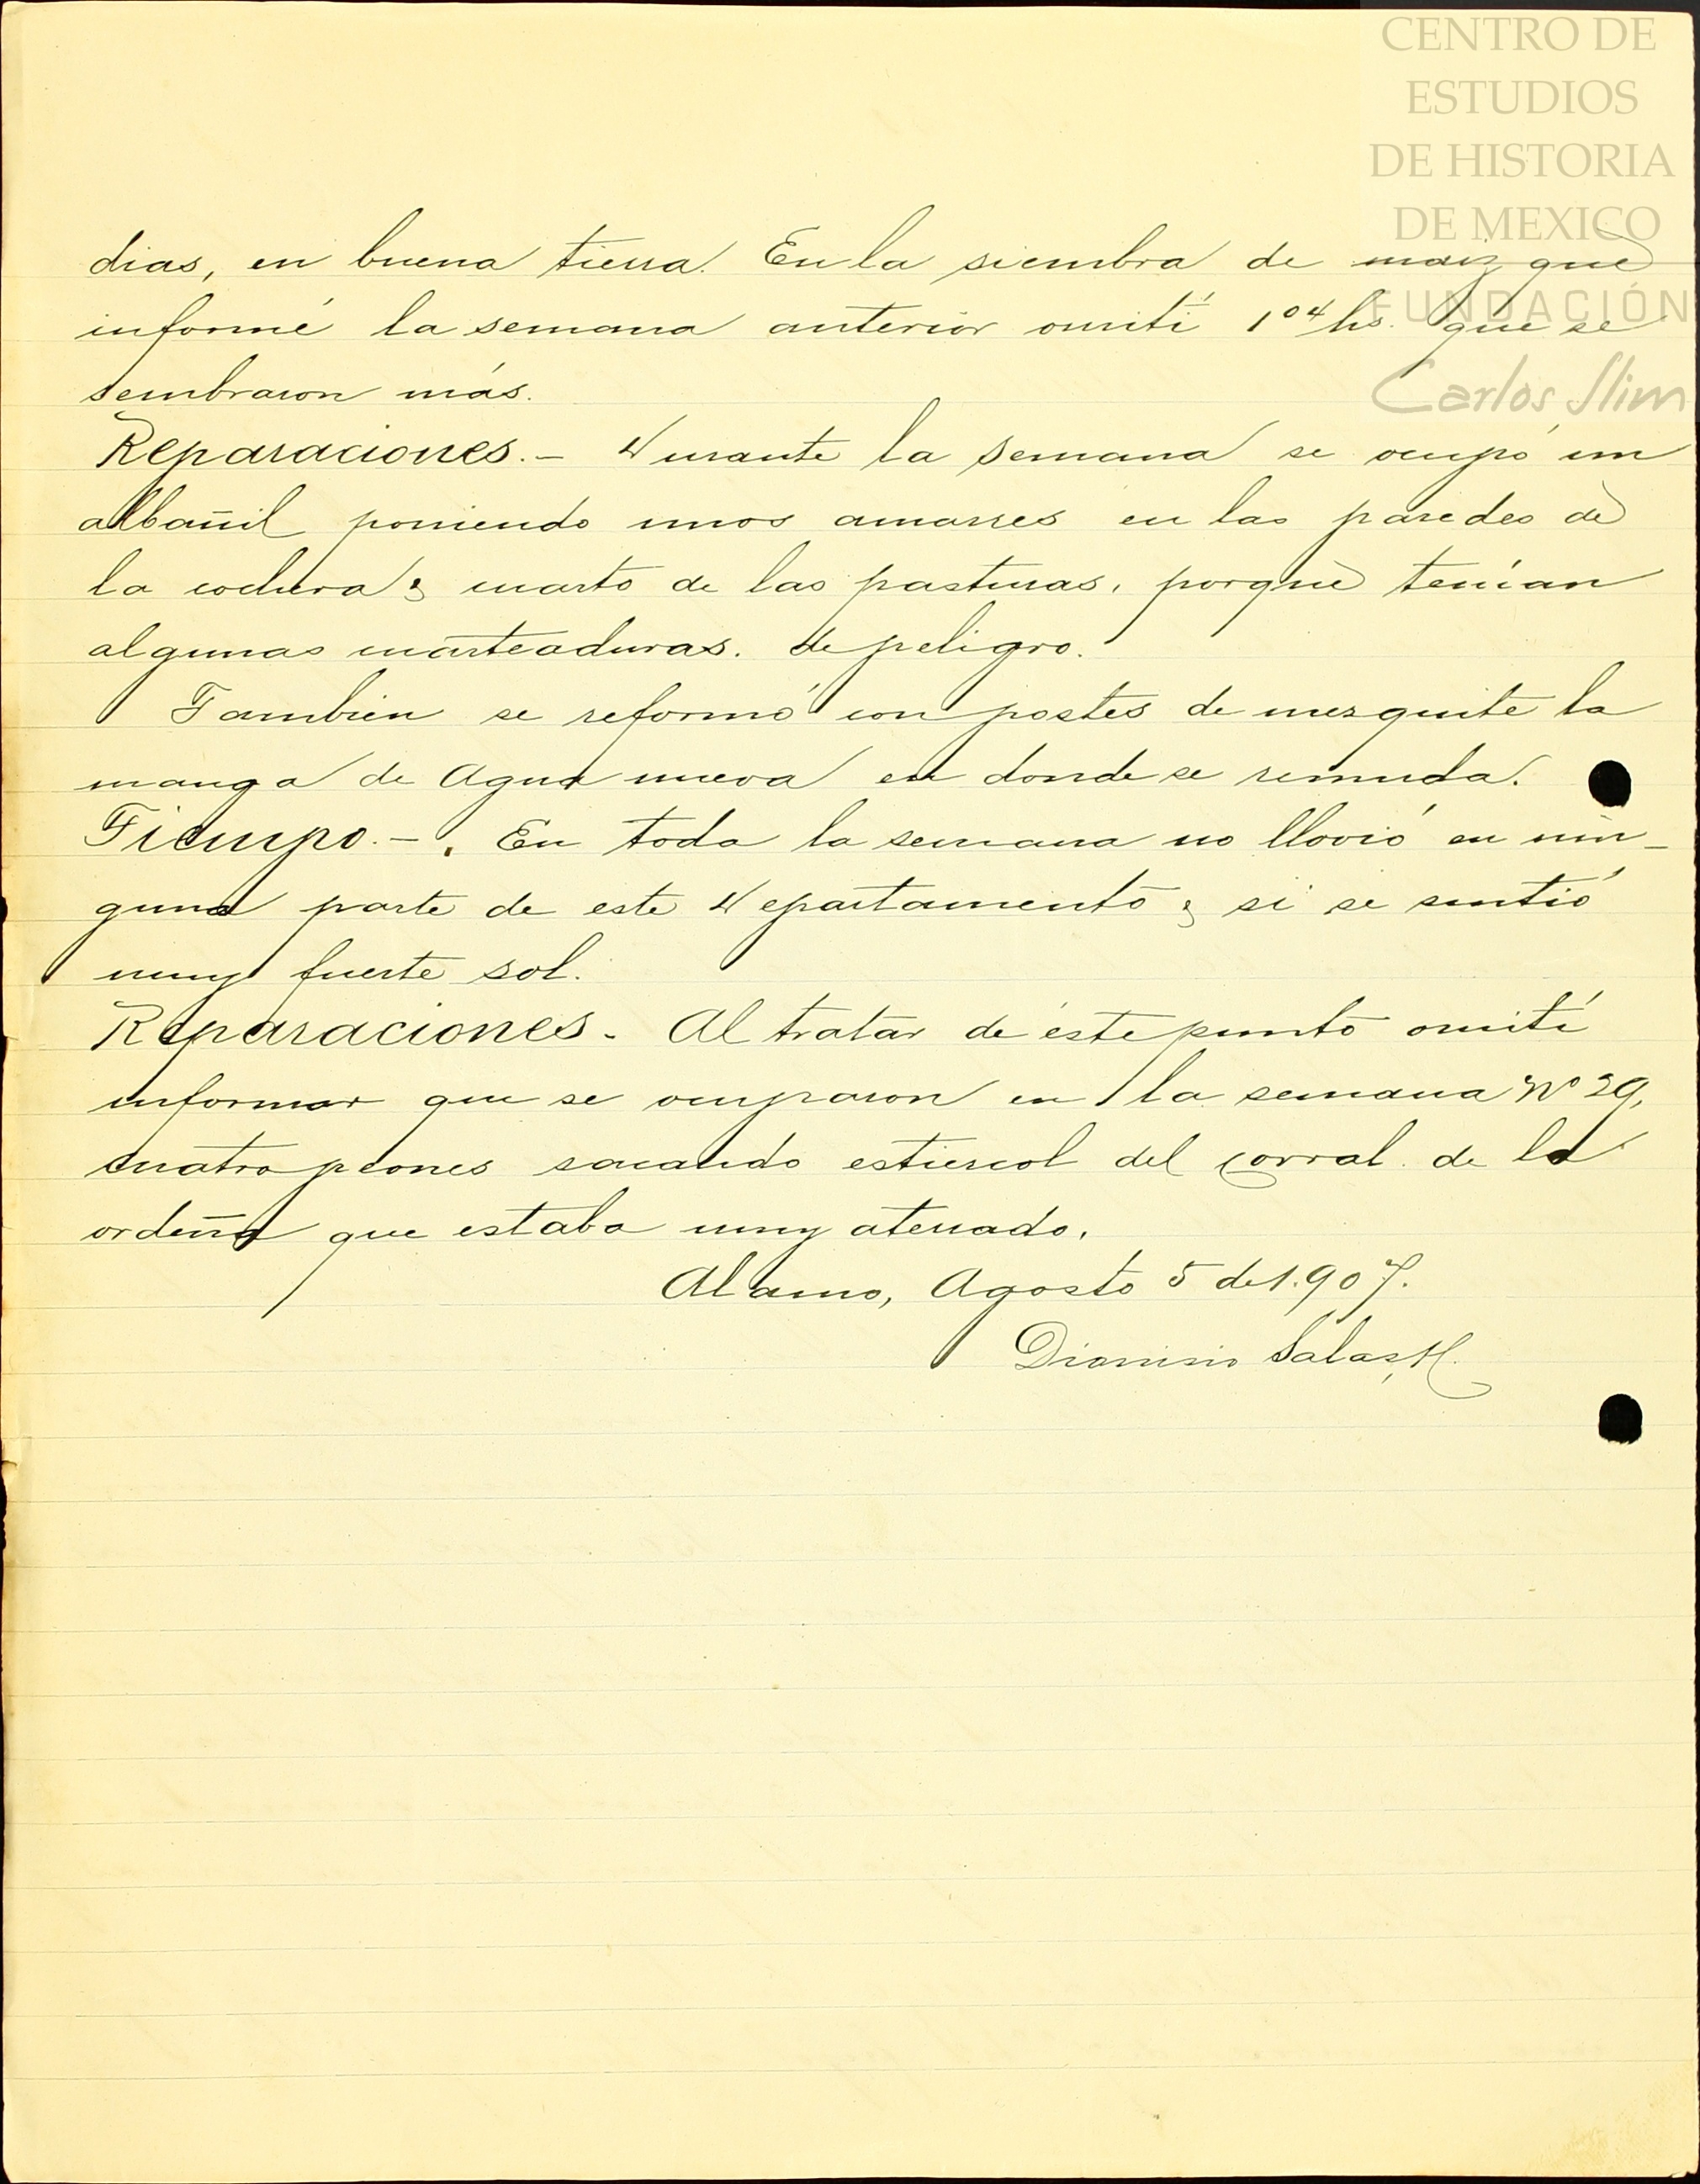 CENTRO DE
ESTUDIOS
DE HISTORIA
DE MEXICO
FUNDACIÓN
Carlos Slim
dias, en buena tierra. En la siembra de maiz que
informé la semana anterior omití 104 hs. que se
sembraron más.
Reparaciones.- Durante la semana se ocupó un
albañil poniendo unos amarres en las paredes de
la cochera y cuarto de las pasturas, porque tenían
algunas cuarteaduras. de peligro.
Tambien se reformó con postes de mezquite la
manga de Agua nueva en donde se remuda.
Tiempo.-. En toda la semana no llovió en nin-
guna parte de este Departamento y si se sintió
muy fuerte sol.
Reparaciones- Al tratar de éste punto omití
informar que se ocuparon en la semana Nº 29,
cuatro peones sacando estiercol del corral de la
ordeña que estaba muy aterrado.
Alamo, Agosto 5 de 1.907.
Dionisio Salas H.